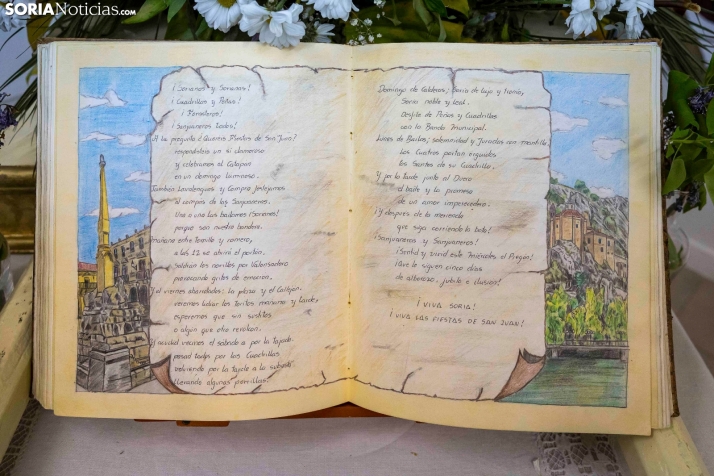 SORIANoticias.com
¡Sorianos y Sorianas!
¡Cuadrillas y Peñas!
¡Forasteros!
¡Sanjuaneros todos!
A la pregunta ¿Queréis Fiestas de San Juan?
respondisteis un sí clamoroso
y celebramos el Catapán
en un domingo luminoso.
También Lavalenguas y Compra festejamos
al compás de las Sanjuaneras.
Una a una las bailamos ¡Sorianos!
porque son nuestra bandera.
Mañana entre tomillo y romero,
a las 12 se abrirá el portón.
Saldrán los novillos por Valonsadero
provocando gritos de emoción.
Y al viernes abarrotados: la plaza y el Callejón.
veremos lidiar los Toritos mañana y tarde,
esperemos que sin sustitos
o algún que otro revolcón.
Y acudid vecinos el sábado a por la tajada
pasad todos por las Cuadrillas
volviendo por la tarde a la subasta
llenando algunas parrillas.
Domingo de Calderas, Soria de lujo y trono,
Soria noble y leal.
Desfile de Peñas y Cuadrillas
con la Banda Municipal.
Lunes de Bailas; solemnidad y Juradas con mantilla
los Cuatros portan erguidos
los Santos de su Cuadrilla.
Y por la tarde junto al Duero
el baile y la promesa
de un amor imperecedero.
¡Y después de la merienda
que siga corriendo la bota!
¡Sanjuaneros y Sanjuaneras!
¡Sentid y vivid este Miércoles el Pregón!
¡Que le siguen cinco días
de alborozo, jubilo e ilusión!
¡VIVA SORIA!
¡VIVA LAS FIESTAS DE SAN JUAN!